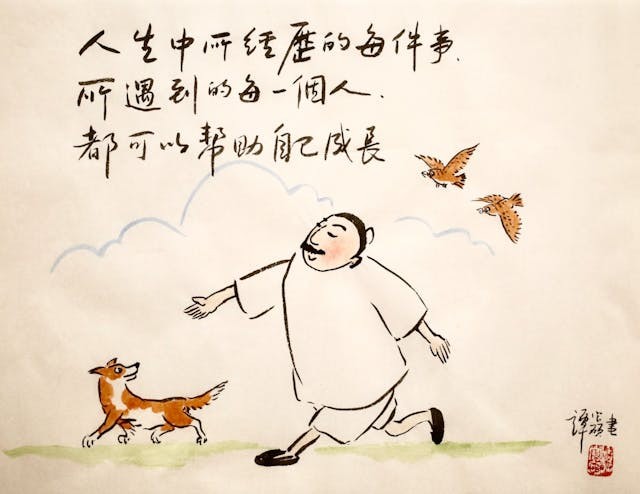 人生中所經歷的每件事.
所遇到的每一個人.
都可以幫助自己成長
譚 畫